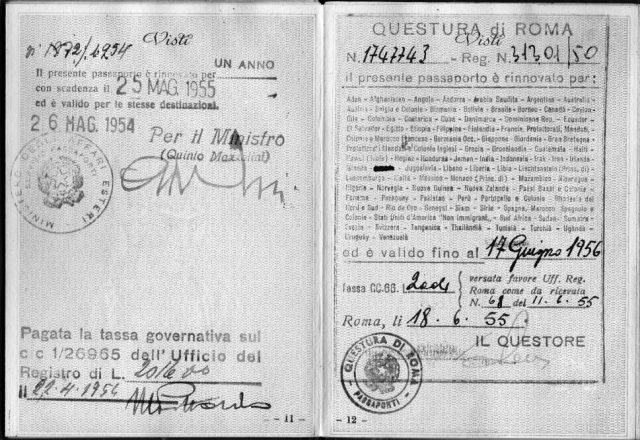 Visti
n° 1872/1954
UN ANNO
Il presente passaporto è rinnovato per
con scadenza il 25 MAG. 1955
ed è valido per le stesse destinazioni.
26 MAG. 1954
Per il Ministro
(Quinto Mazzolini)
MINISTERO DEGLI AFFARI ESTERI
PASSAPORTI
Pagata la tassa governativa sul
c/c 1/26965 dell'Ufficio del
Registro di L.
Il 22.4.1954
— 11 —
QUESTURA di ROMA
Visti
N. 1747743 - Reg. N. 31301/50
il presente passaporto è rinnovato per:
Aden - Afghanistan - Angola - Andorra - Arabia Saudita - Argentina - Australia
Austria - Belgio e Colonie - Birmania - Bolivia - Brasile - Borneo - Canadà - Ceylon
Cile - Colombia - Costarica - Cuba - Danimarca - Dominicana Rep. - Ecuador -
El Salvador - Egitto - Etiopia - Filippine - Finlandia - Francia, Protettorati, Mandati,
Colonie e Marocco Francese - Germania Occ. - Giappone - Giordania - Gran Bretagna
Protettorati Mandati e Colonie Inglesi - Grecia - Groenlandia - Guatemala - Haiti -
Hawai (Isole) - Hegiaz - Honduras - Jemen - India - Indonesia - Irak - Iran - Irlanda
Islanda - Jugoslavia - Libano - Liberia - Libia - Liechtenstein (Princ. di) -
Lussemburgo - Malta - Messico - Monaco (Princ. di) - Mozambico - Nicaragua
Nigeria - Norvegia - Nuova Guinea - Nuova Zelanda - Paesi Bassi e Colonie -
Panama - Paraguay - Pakistan - Perù - Portogallo e Colonie - Rhodesia del
Nord e Sud - Rio de Oro - Senegal - Siam - Siria - Spagna, Marocco Spagnolo e
Colonie - Stati Uniti d'America "Non immigrant" - Sud Africa - Sudan - Sumatra
Svezia - Svizzera - Tanganica - Thailandia - Tunisia - Turchia - Uganda
Uruguay - Venezuela
ed è valido fino al 17 Giugno 1956
tassa CC.GG. L. 2004
versata favore Uff. Reg.
Roma come da ricevuta
N. 68 del 11.6.55
Roma, li 18.6.55
IL QUESTORE
QUESTURA DI ROMA
PASSAPORTI
— 12 —